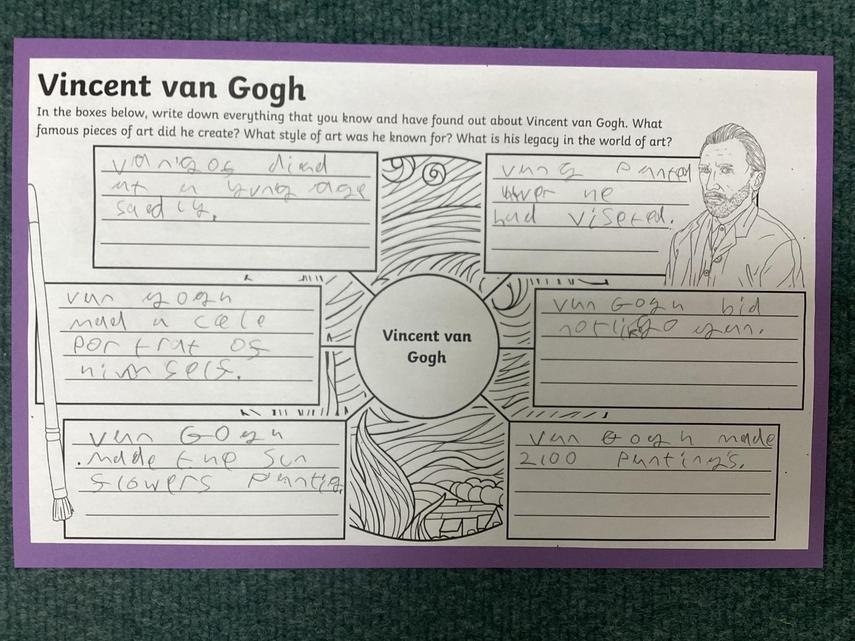 Vincent van Gogh
In the boxes below, write down everything that you know and have found out about Vincent van Gogh. What
famous pieces of art did he create? What style of art was he known for? What is his legacy in the world of art?
died
at a yung age
saedly.
van g panted
wver he
had viseted.
van gogh
mad a cele
portrat of
himself.
van Gogh bid
Vincent van
Gogh
van GOgh
made the sun
flowers panting
van Gogh made
2100 puntings.